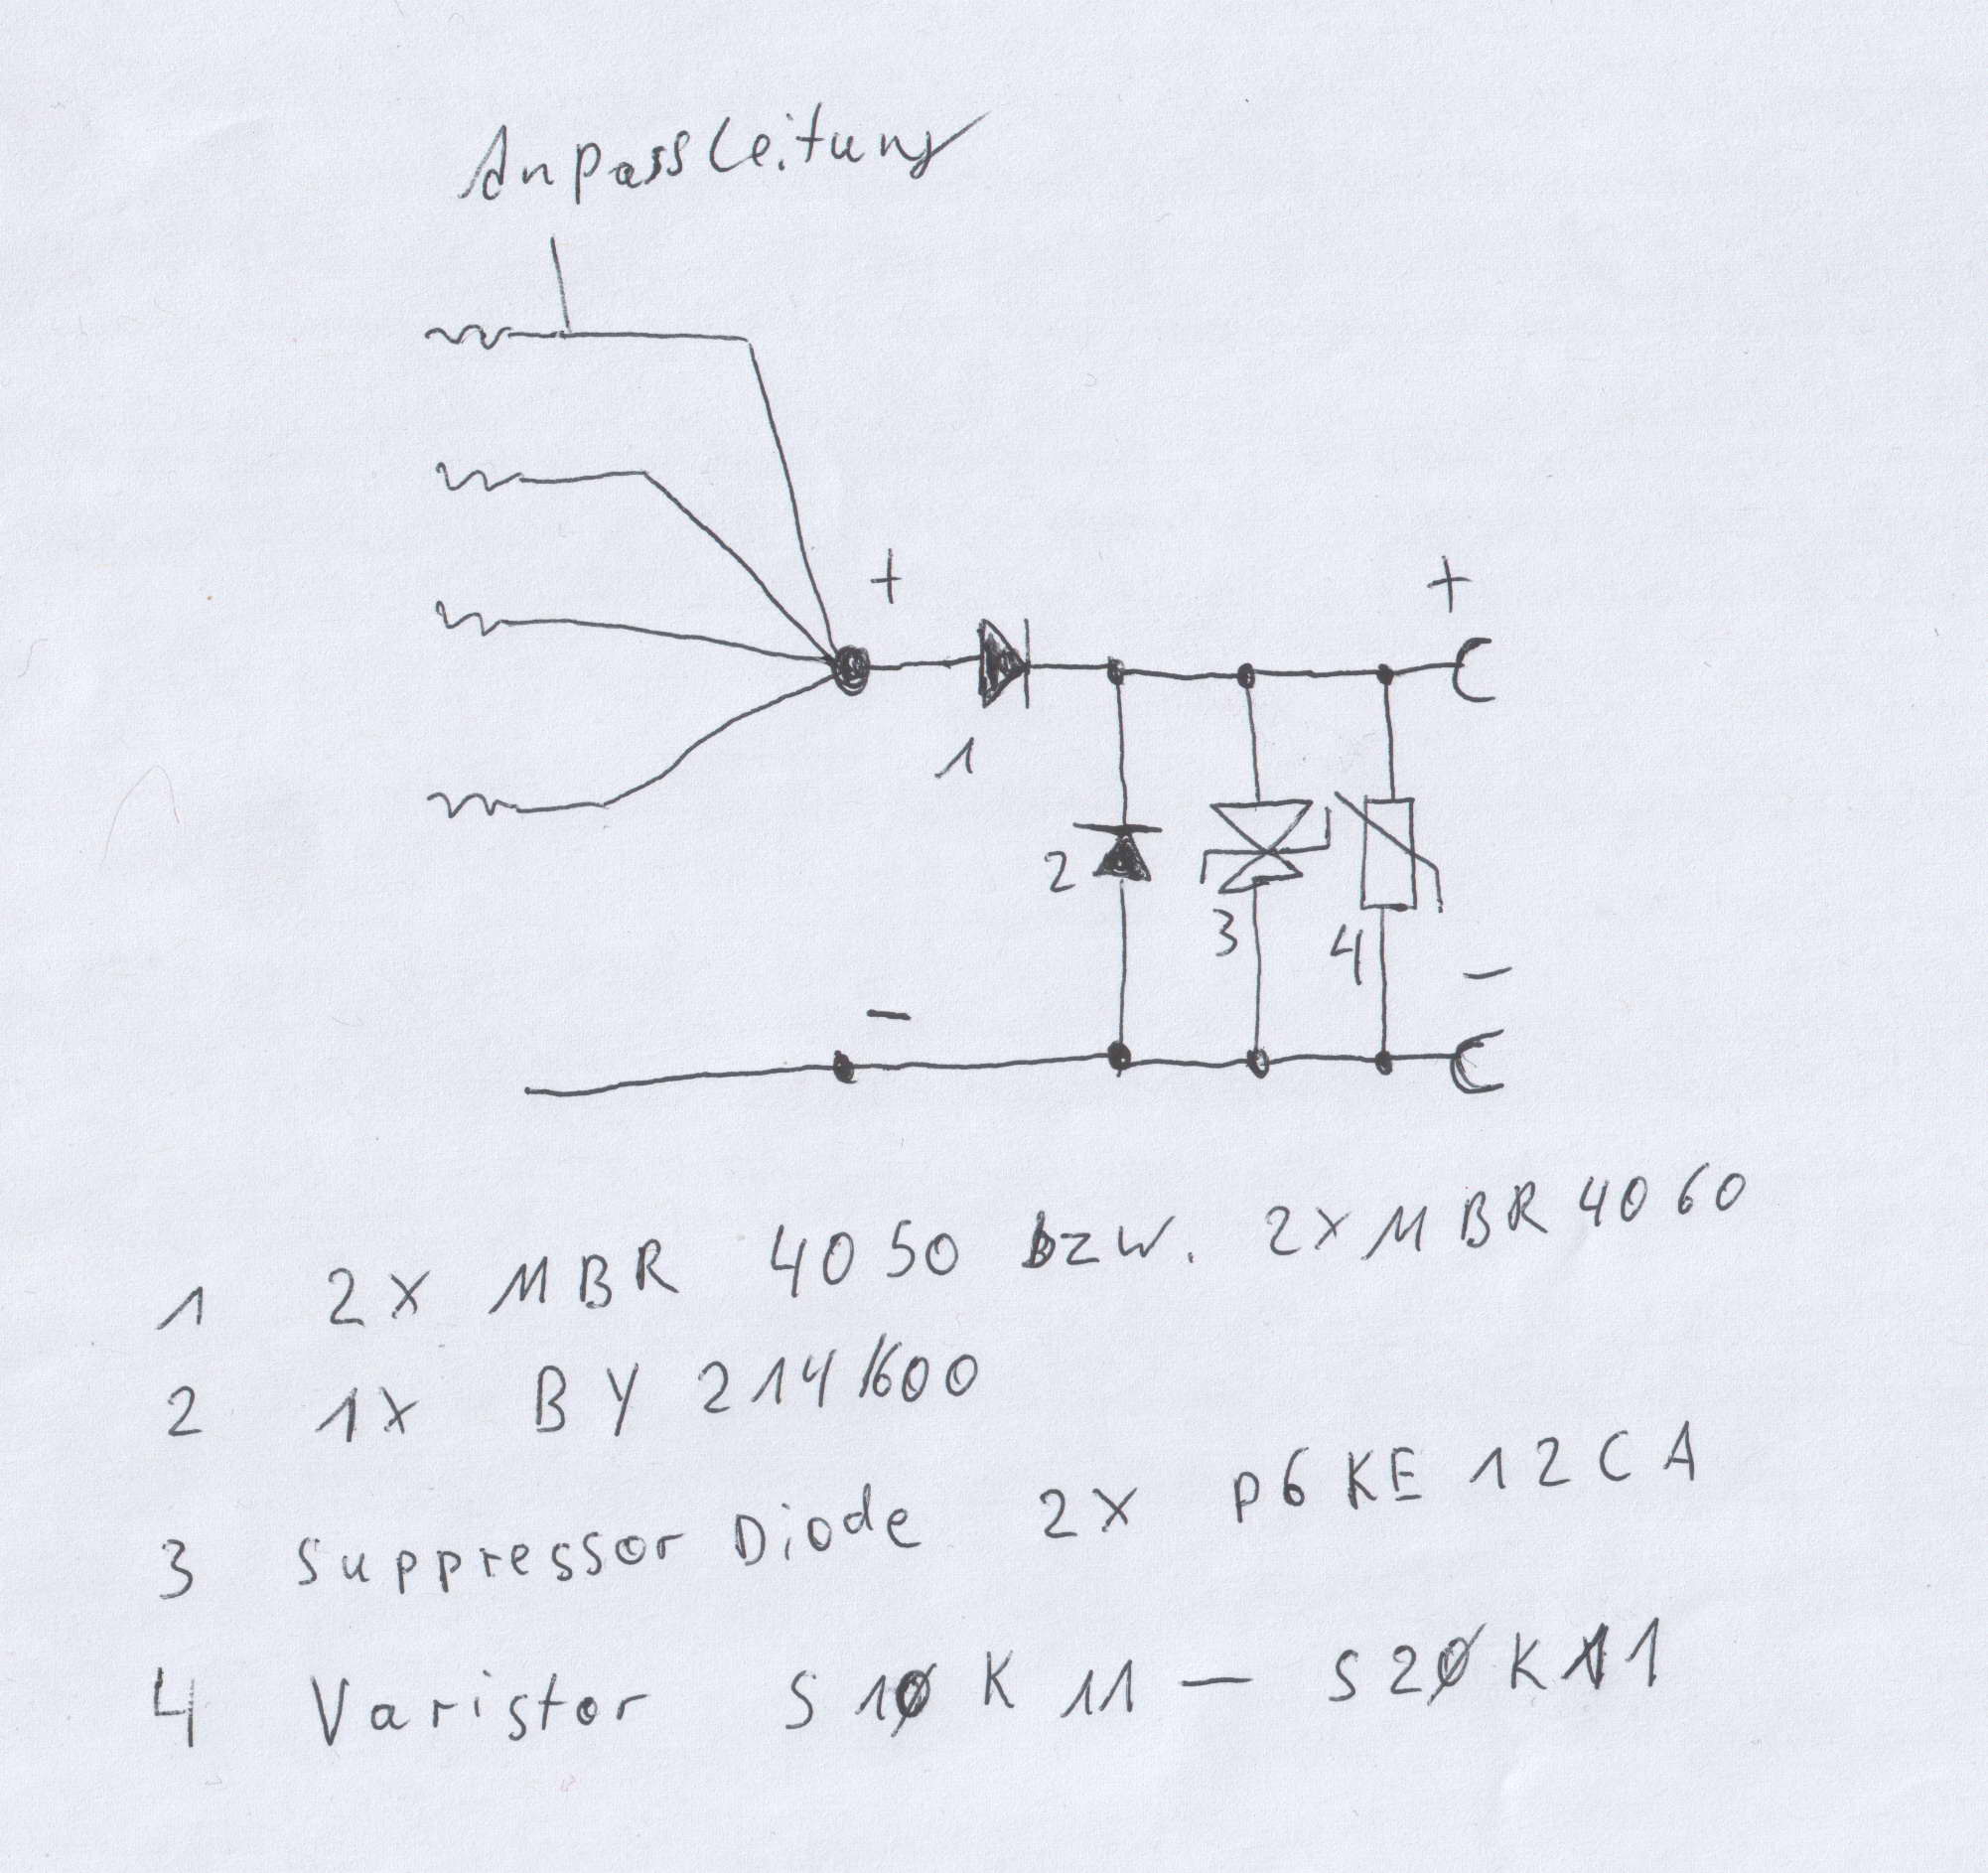 Anpassleitung
+
+
1
2
3
4
-
-
1 2x MBR 4050 bzw. 2x MBR 4060
2 1x BY 214/600
3 Suppressor Diode 2x P6KE12CA
4 Varistor S10K11 - S20K11